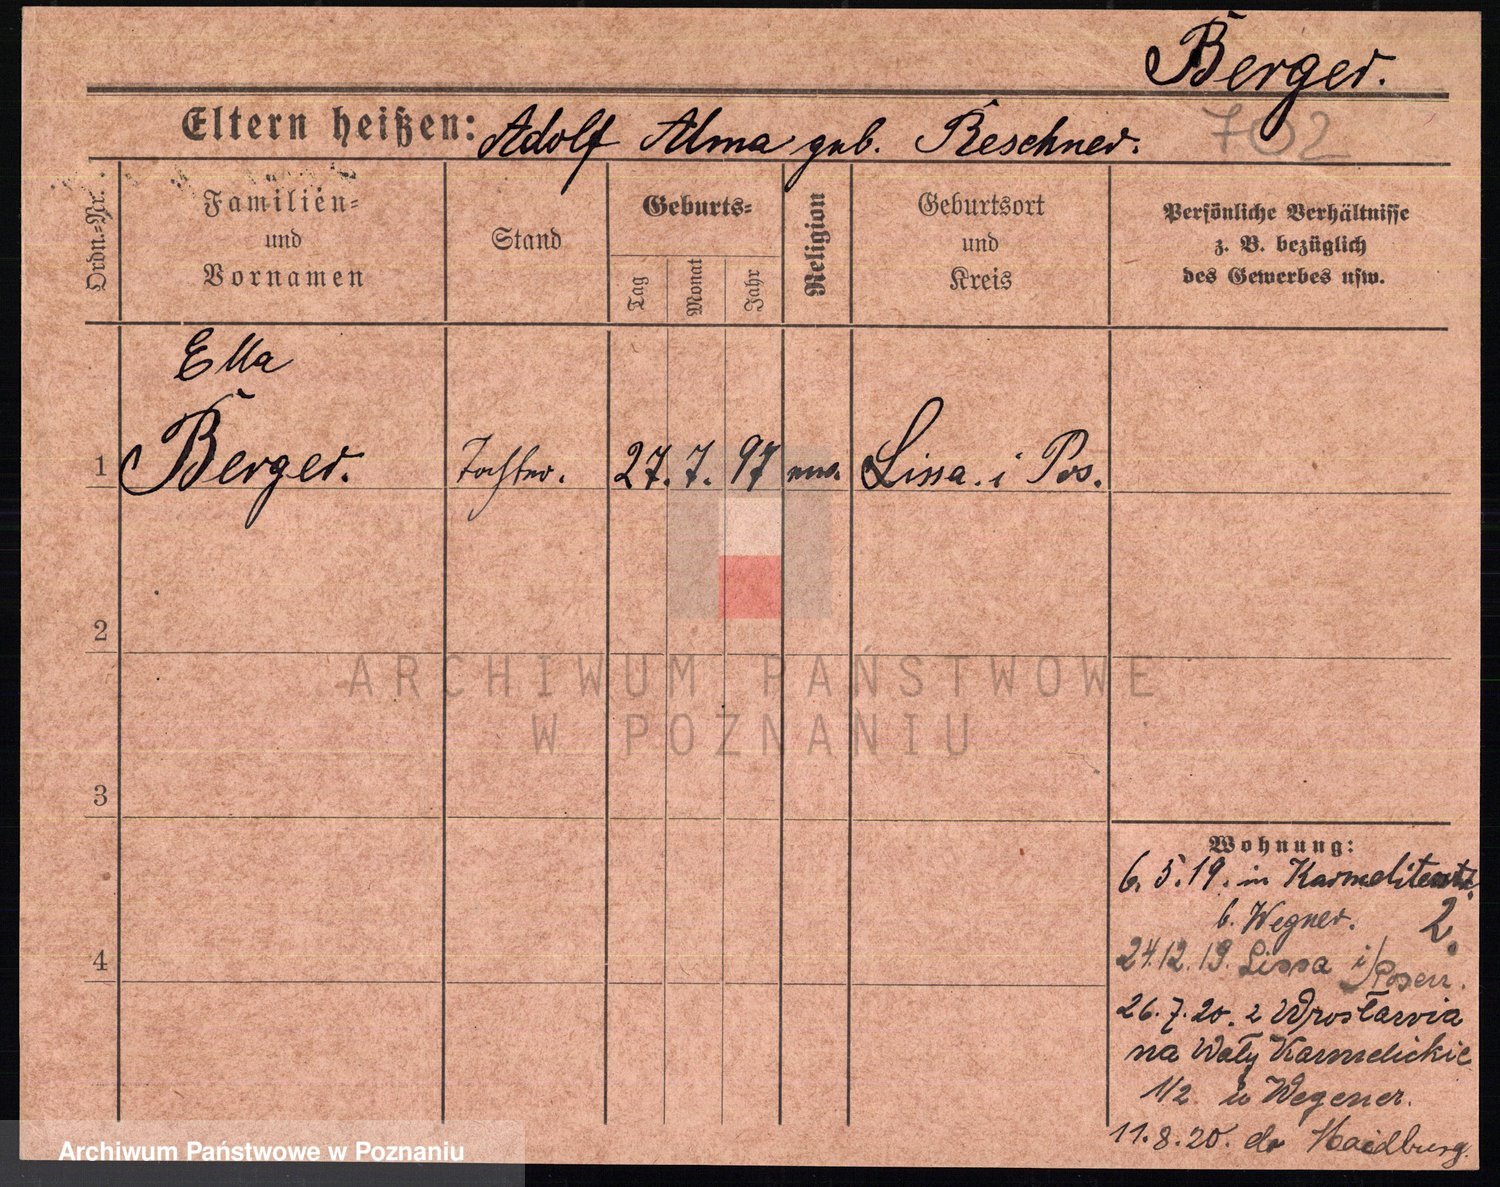 Berger.
Eltern heißen: Adolf Alma geb. Reschner.
702
Ordn.-Nr.
Familien=
und
Vornamen
Stand
Geburts=
Tag
Monat
Jahr
Religion
Geburtsort
und
Kreis
Persönliche Verhältnisse
z. B. bezüglich
des Gewerbes usw.
Ella
1 Berger. Tochter. 27. 7. 97 Lissa. i Pos.
2
ARCHIWUM PAŃSTWOWE
W POZNANIU
3
Wohnung:
6. 5. 19. in Karmelitenstr.
b. Wegner. 2.
4
24.12.19. Lissa i/Posen.
26.7.20. z Wrocławia
na Wały Karmelickie
1/2 u Wegener.
11.8.20. do
Archiwum Państwowe w Poznaniu